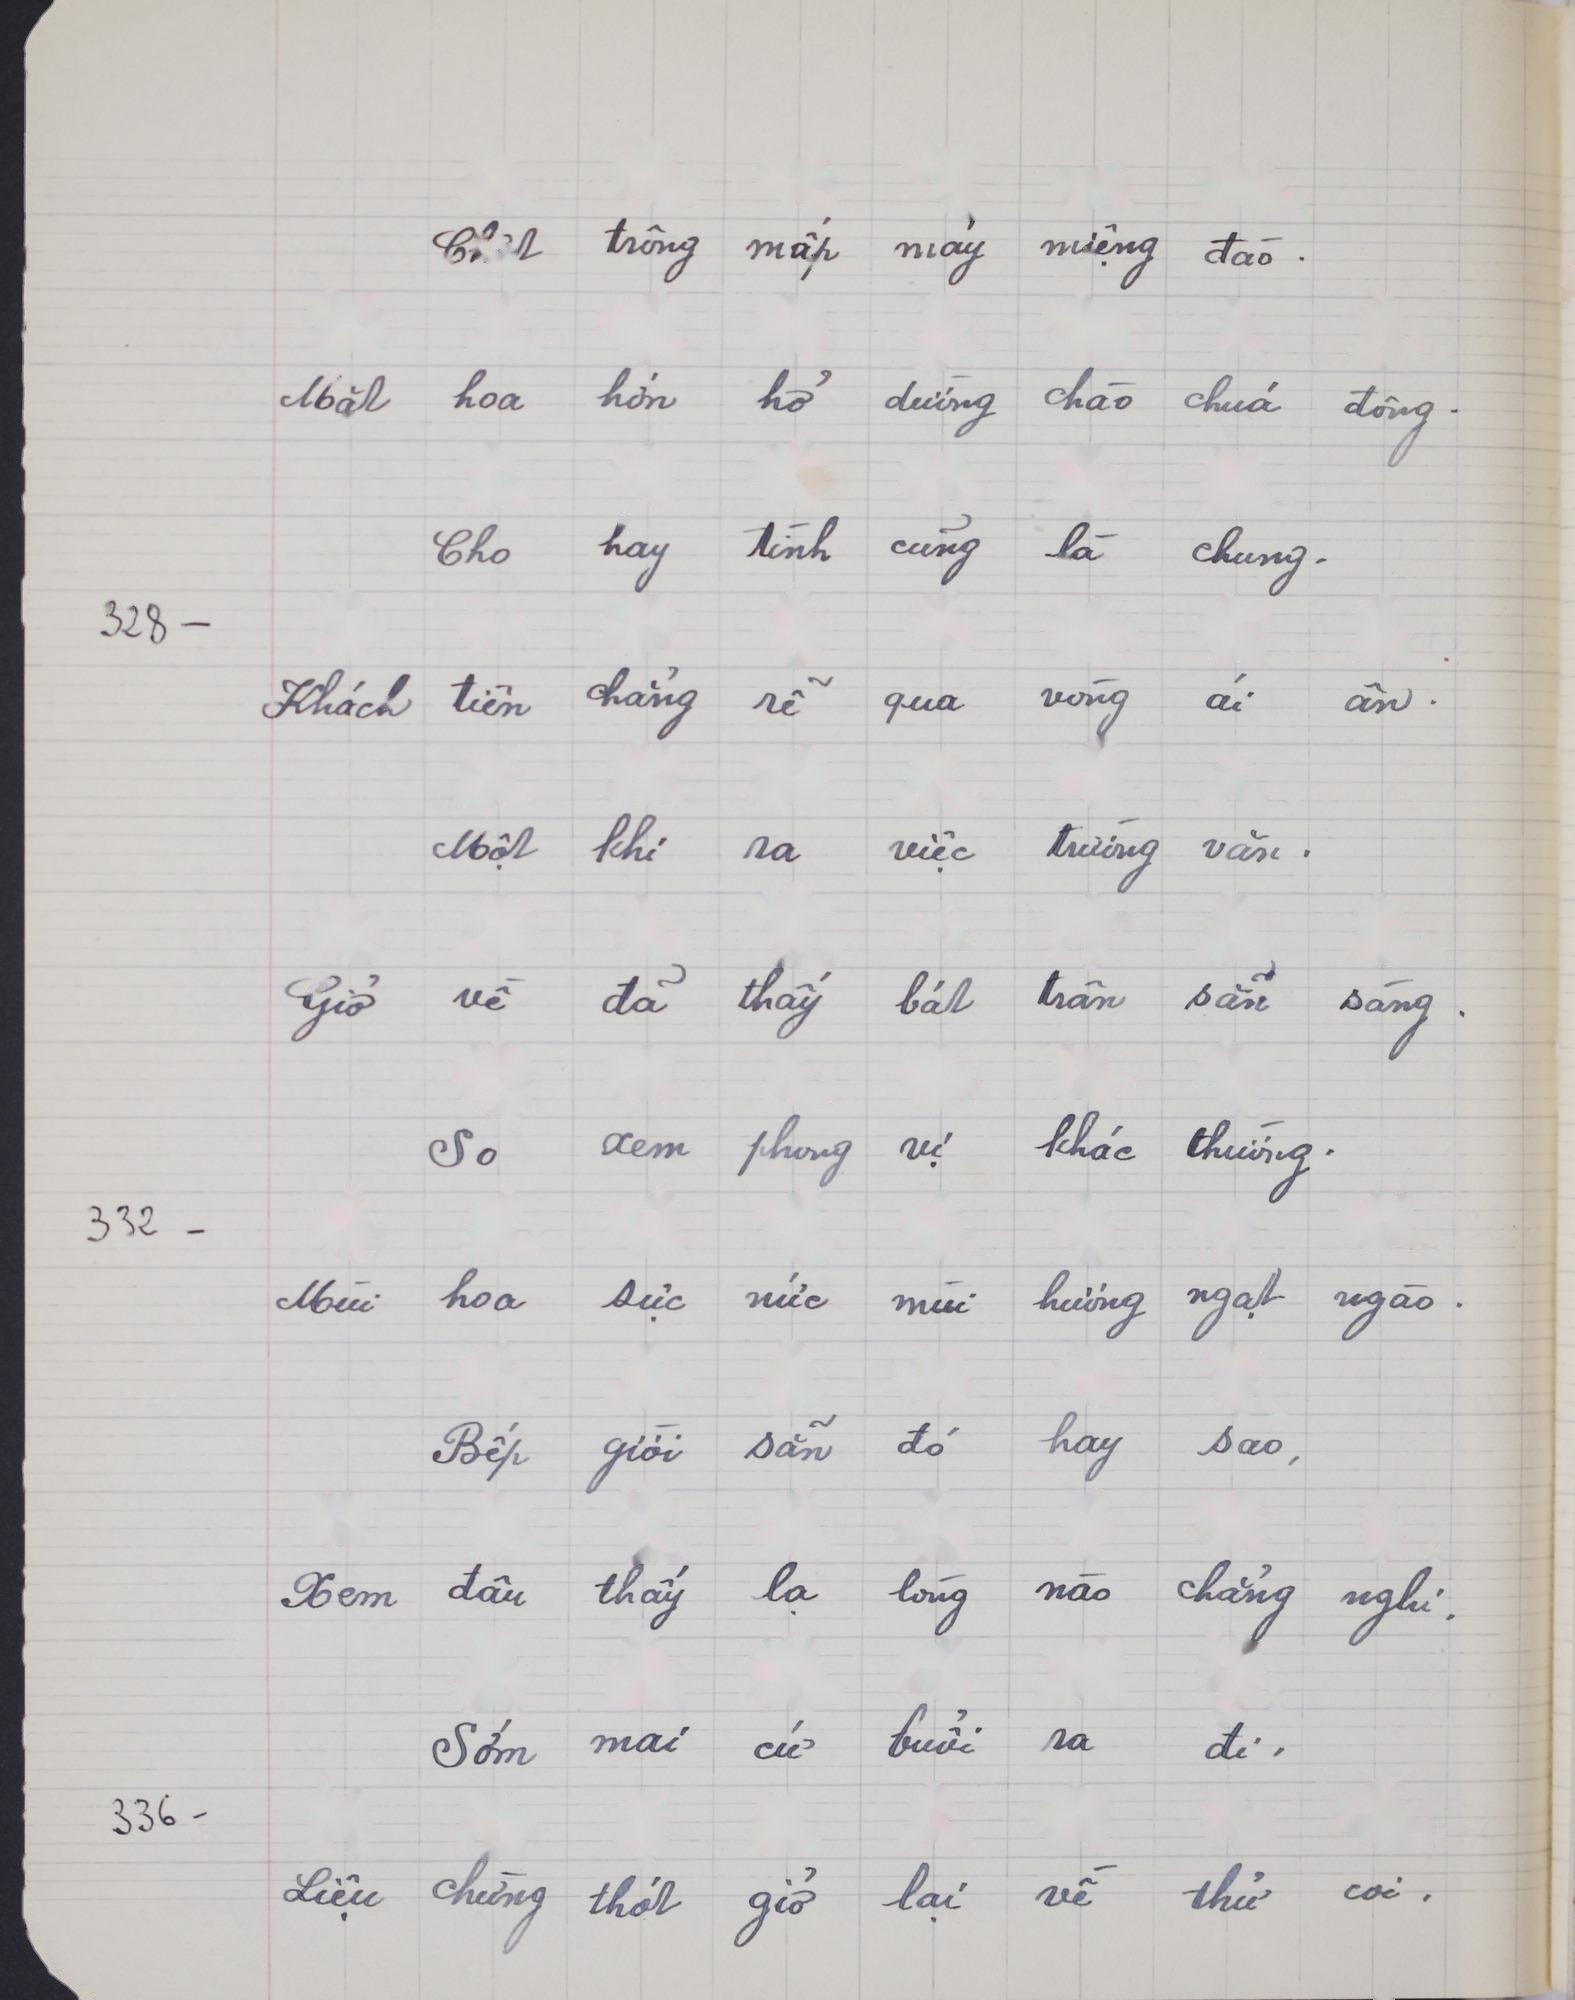 trông mấp máy miệng đào.
Mặt hoa hớn hở dường chào chuá đông.
Cho hay tình cũng là chung.
328 –
Khách tiên chẳng rẽ qua vòng ái ân.
Một khi ra việc trường văn.
Giở về đã thấy bát trân sẵn sàng.
So xem phong vị khác thường.
332 –
Mùi hoa sực nức mùi hương ngạt ngào.
Bếp giời sẵn đó hay sao,
Xem đâu thấy lạ lòng nào chẳng nghi.
Sớm mai cứ buổi ra đi.
336 –
Liệu chừng thót giở lại về thử coi.